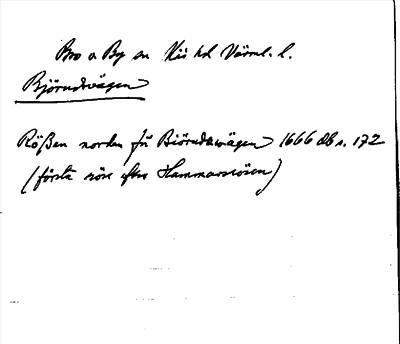 Bro o By sn Näs hd Värml. l.
Björndvägen
Rößen norden fü Biörndwägen 1666 db s. 172
(första rör efter Hammarrösen)